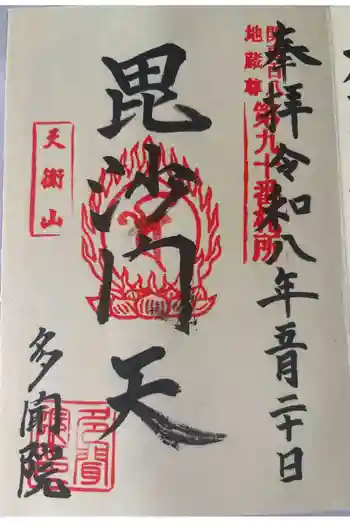 奉拝 令和八年五月二十日
関東百八
地蔵尊
第九十番札所
毘沙門天
天衛山
多聞院